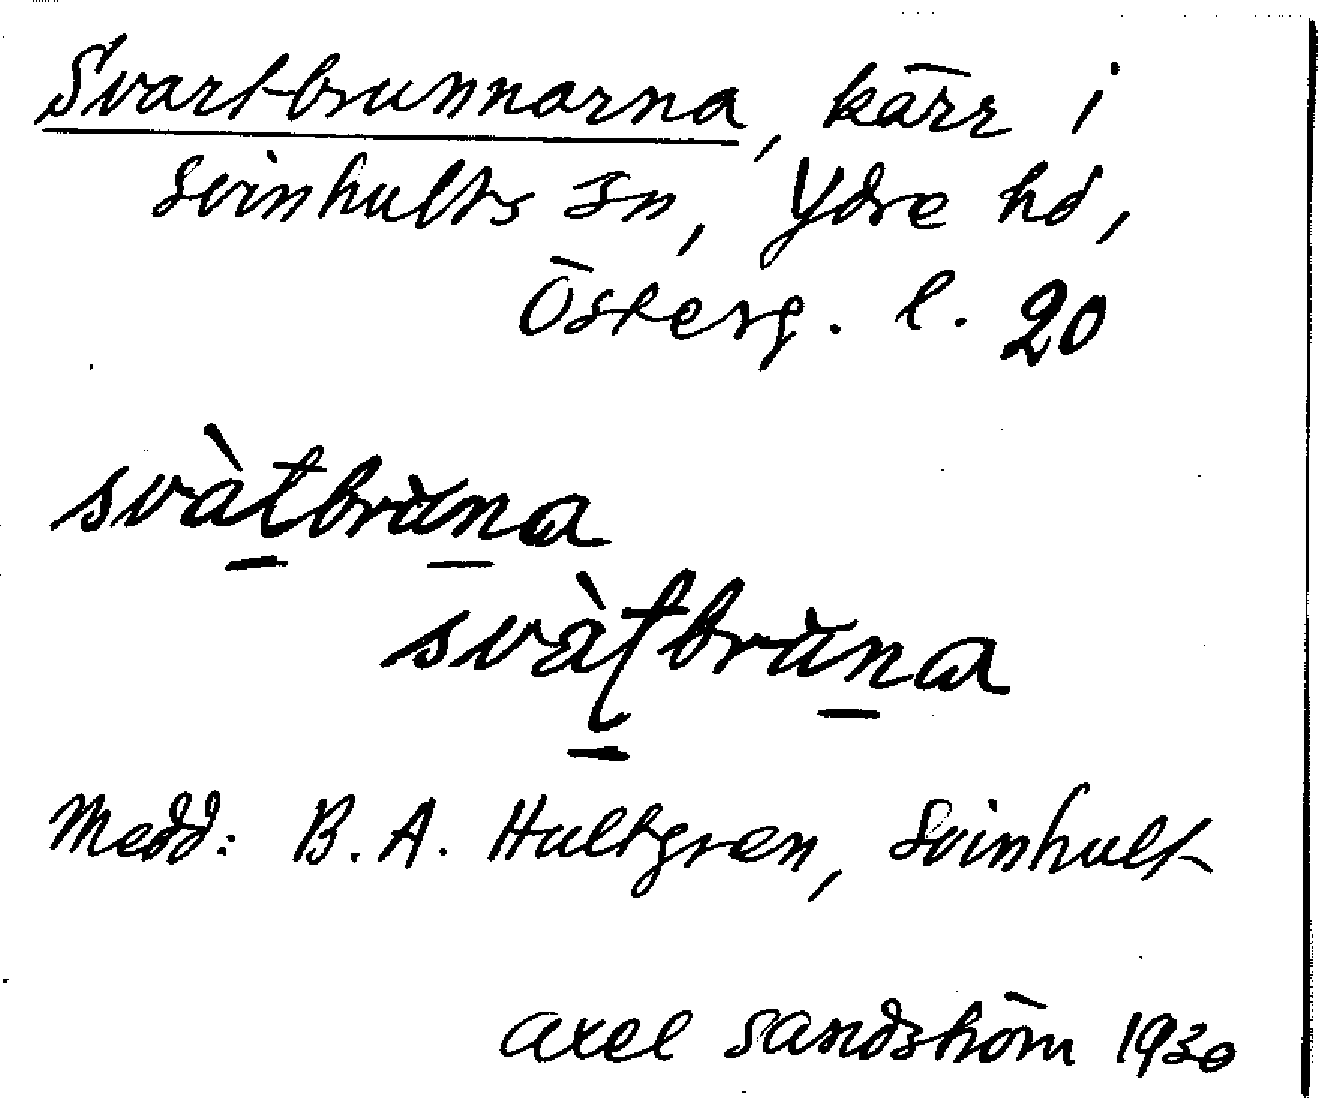 Svartbrunnarna, kärr i
Svinhults sn, Ydre hd,
Österg. l. 20
svàtbrùna
svàt̩brùna
Medd: B. A. Hultgren, Svinhult
Axel Sandström 1930